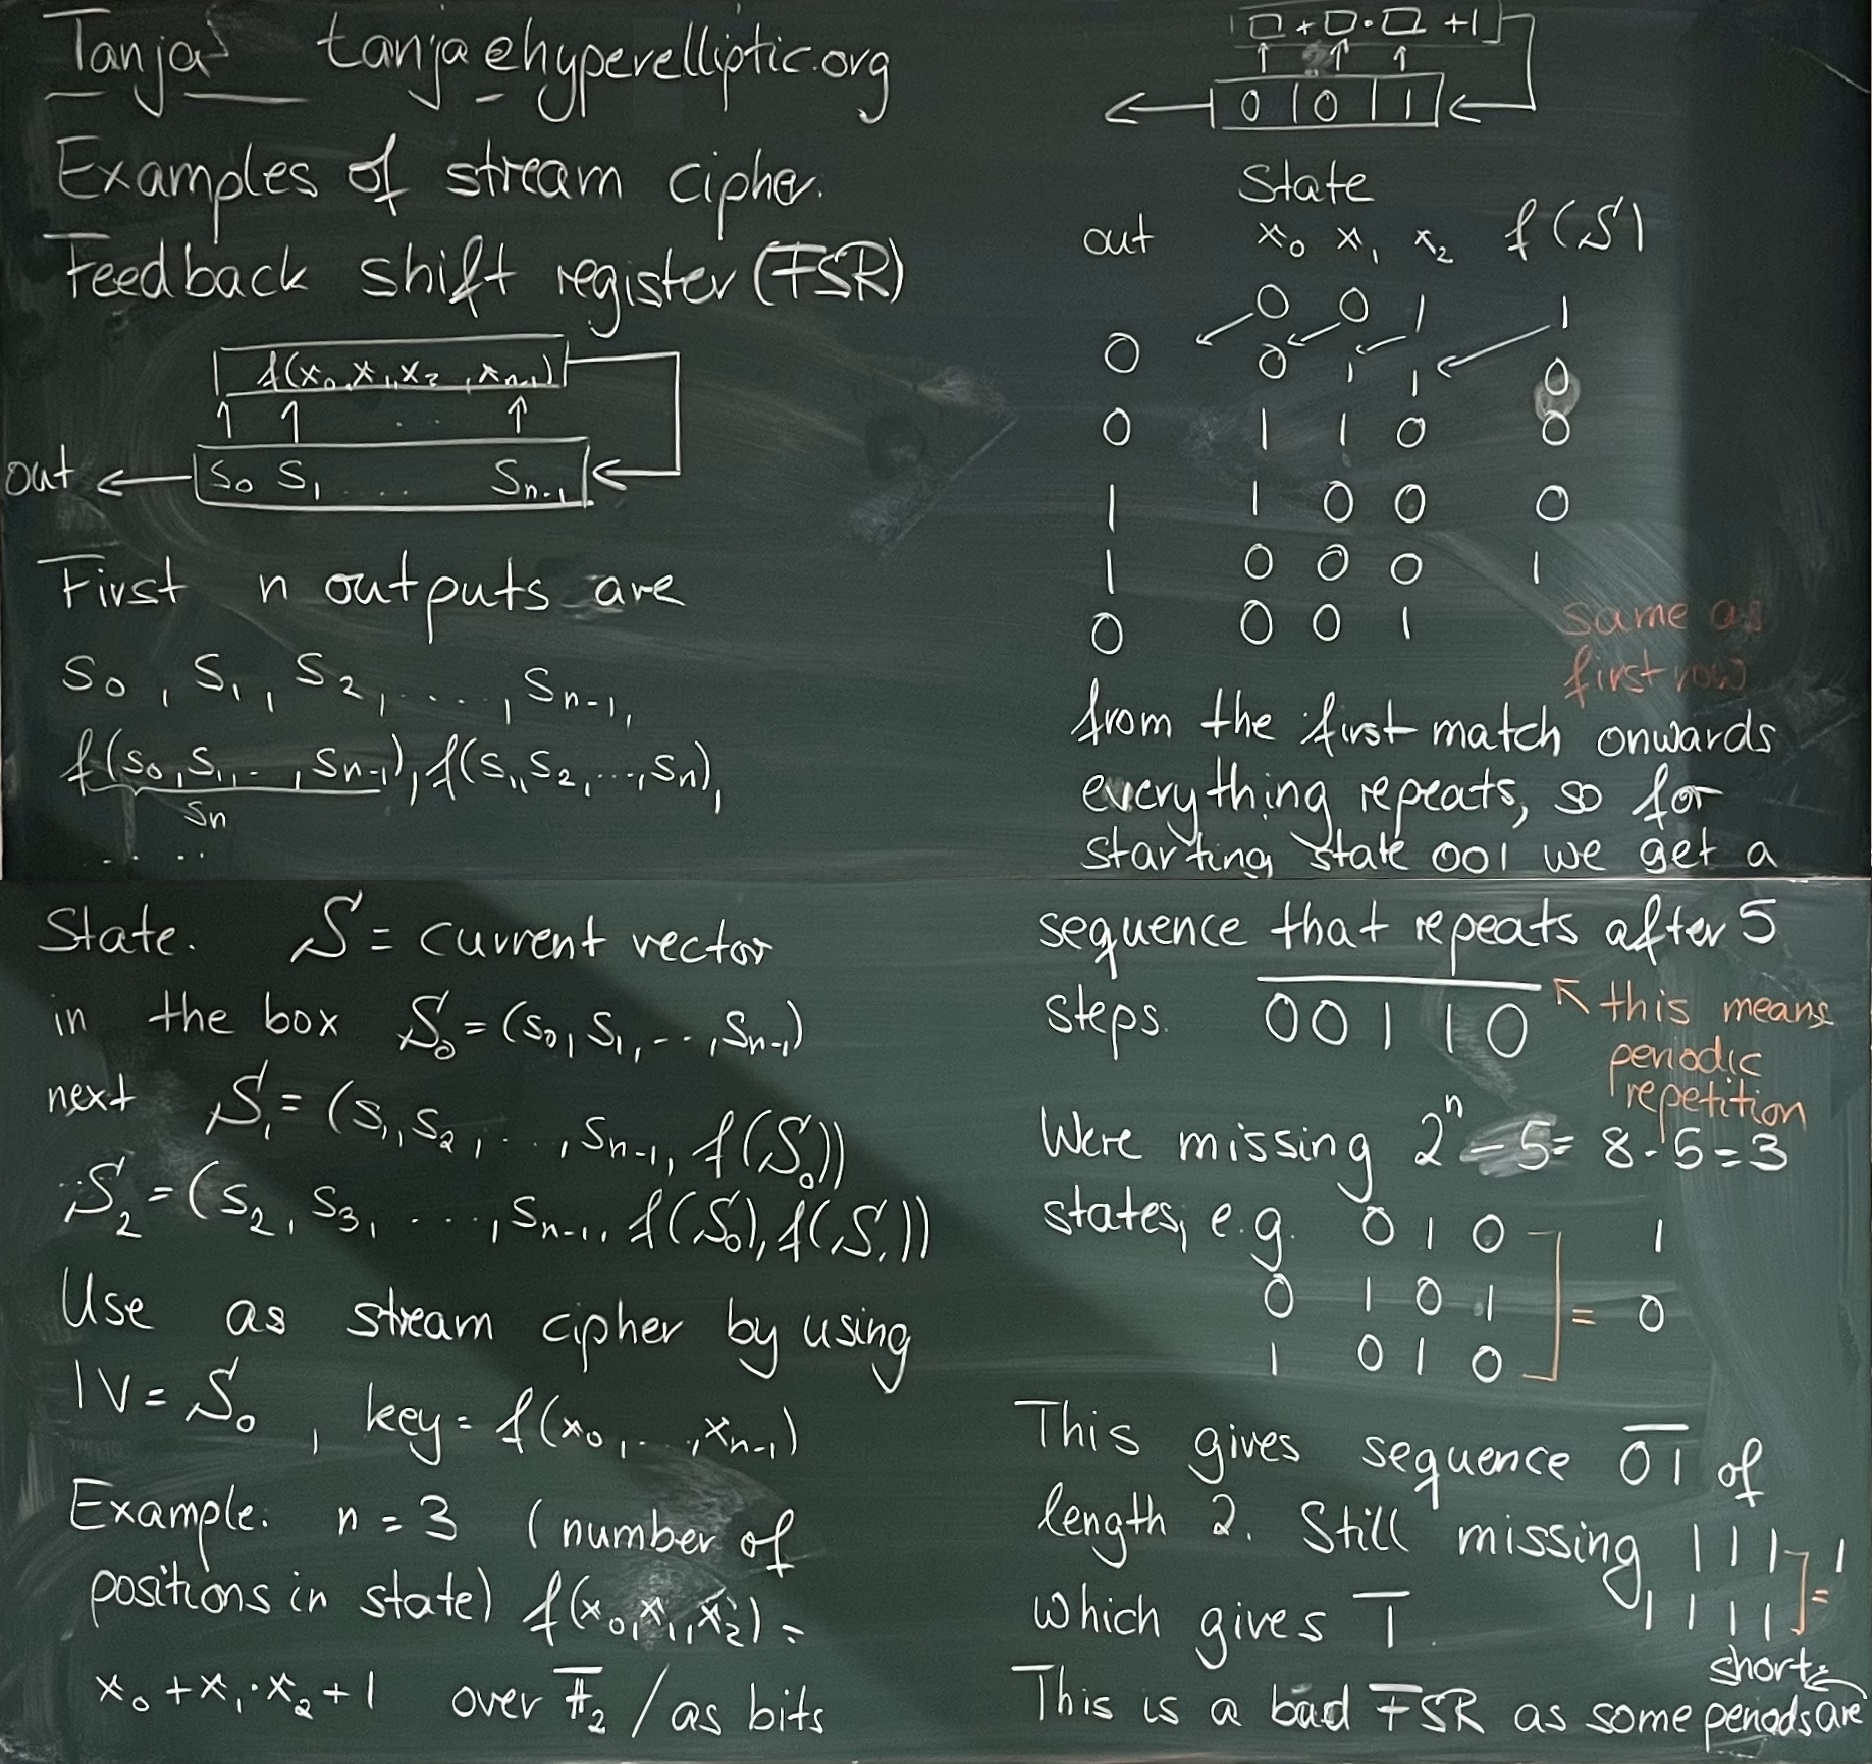 Tanja tanja@hyperelliptic.org
Examples of stream cipher.
Feedback shift register (FSR)
f(x₀,x₁,x₂,xₙ₋₁)
out ← s₀ s₁ .... sₙ₋₁
First n outputs are
s₀, s₁, s₂, ...., sₙ₋₁,
f(s₀,s₁,..,sₙ₋₁), f(s₁,s₂,...,sₙ),
sₙ
.....
State. S = current vector
in the box S₀ = (s₀,s₁,...,sₙ₋₁)
next S₁ = (s₁,s₂,...,sₙ₋₁, f(S₀))
S₂ = (s₂,s₃,....,sₙ₋₁, f(S₀), f(S₁))
Use as stream cipher by using
IV = S₀, key = f(x₀,..,xₙ₋₁)
Example: n = 3 (number of
positions in state) f(x₀,x₁,x₂) =
x₀+x₁·x₂+1 over F₂ / as bits
□+□·□+1
0 | 0 | 1
State
out x₀ x₁ x₂ f(S)
0 0 1 1
0 0 1 1 0
0 1 1 0 0
1 1 0 0 0
1 0 0 0 1
0 0 0 1 same as
first row
from the first match onwards
everything repeats, so for
starting state 001 we get a
sequence that repeats after 5
steps. 00110 ↖ this means
periodic
repetition
Were missing 2ⁿ - 5 = 8-5=3
states, e.g. 0 1 0 1
0 1 0 1 = 0
1 0 1 0
This gives sequence 01 of
length 2. Still missing 111 1
which gives 1. 1 1 1 1 =
short
This is a bad FSR as some periods are